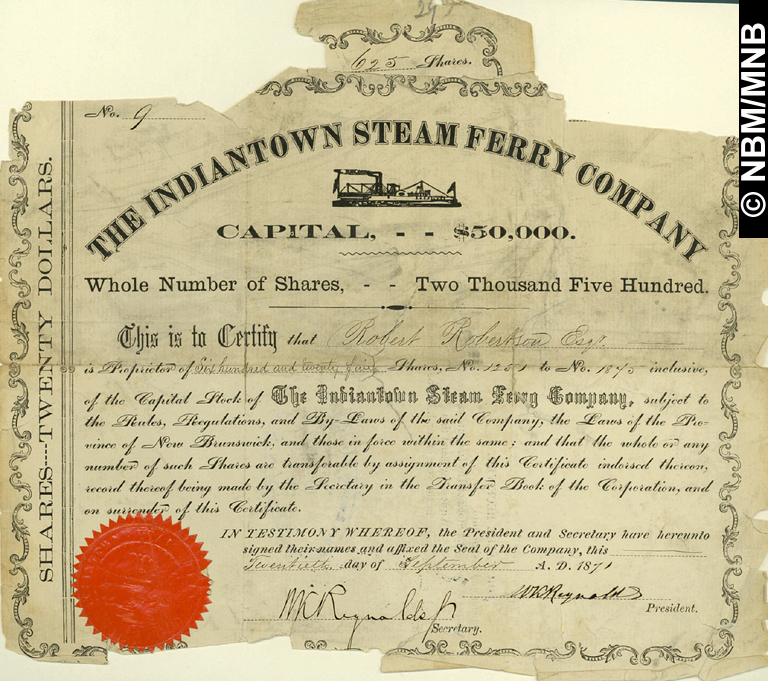 625 Shares.
No. 9
THE INDIANTOWN STEAM FERRY COMPANY
CAPITAL, - - $50,000.
Whole Number of Shares, - - Two Thousand Five Hundred.
This is to Certify that Robert Robertson Esqr.
is Proprietor of Six hundred and twenty five Shares, No. 1251 to No. 1875 inclusive,
of the Capital Stock of The Indiantown Steam Ferry Company, subject to
the Rules, Regulations, and By-Laws of the said Company, the Laws of the Pro-
vince of New Brunswick, and those in force within the same : and that the whole or any
number of such Shares are transferable by assignment of this Certificate indorsed thereon,
record thereof being made by the Secretary in the Transfer Book of the Corporation, and
on surrender of this Certificate.
IN TESTIMONY WHEREOF, the President and Secretary have hereunto
signed their names and affixed the Seal of the Company, this
Twentieth day of September A. D. 1871
WK Reynolds
President.
WK Reynolds Jr
Secretary.
SHARES---TWENTY DOLLARS.
© NBM/MNB